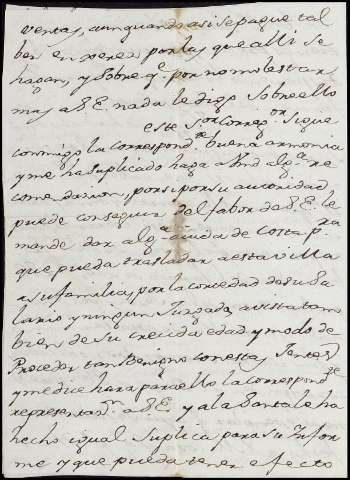 ventas, aunquando asi se pague tal
bes en veres por las que alli se
hagan, y sobre q.e por no molestar
mas a S.E. nada le digo sobre ello
este S.or Correg.or sigue
conmigo la correspond.te buena armonia
y me ha suplicado haga a Vmd alg.a re
comendacion, por si por su autoridad
puede conseguir del fabor de S.E. le
mande dar alg.a aiuda de Costa p.ra
que pueda trasladar a esta villa
a su familia, por la cortedad de su Sa
lario y ningun Juzgado, a vista tam
bien de su crecida edad y modo de
Proceder tan Benigno con estas Jentes
y me dice hara para ello la correspond.te
representas.n a S.E. y a la Santa le ha
hecho igual suplica para su Infor
me y que pueda tener efecto